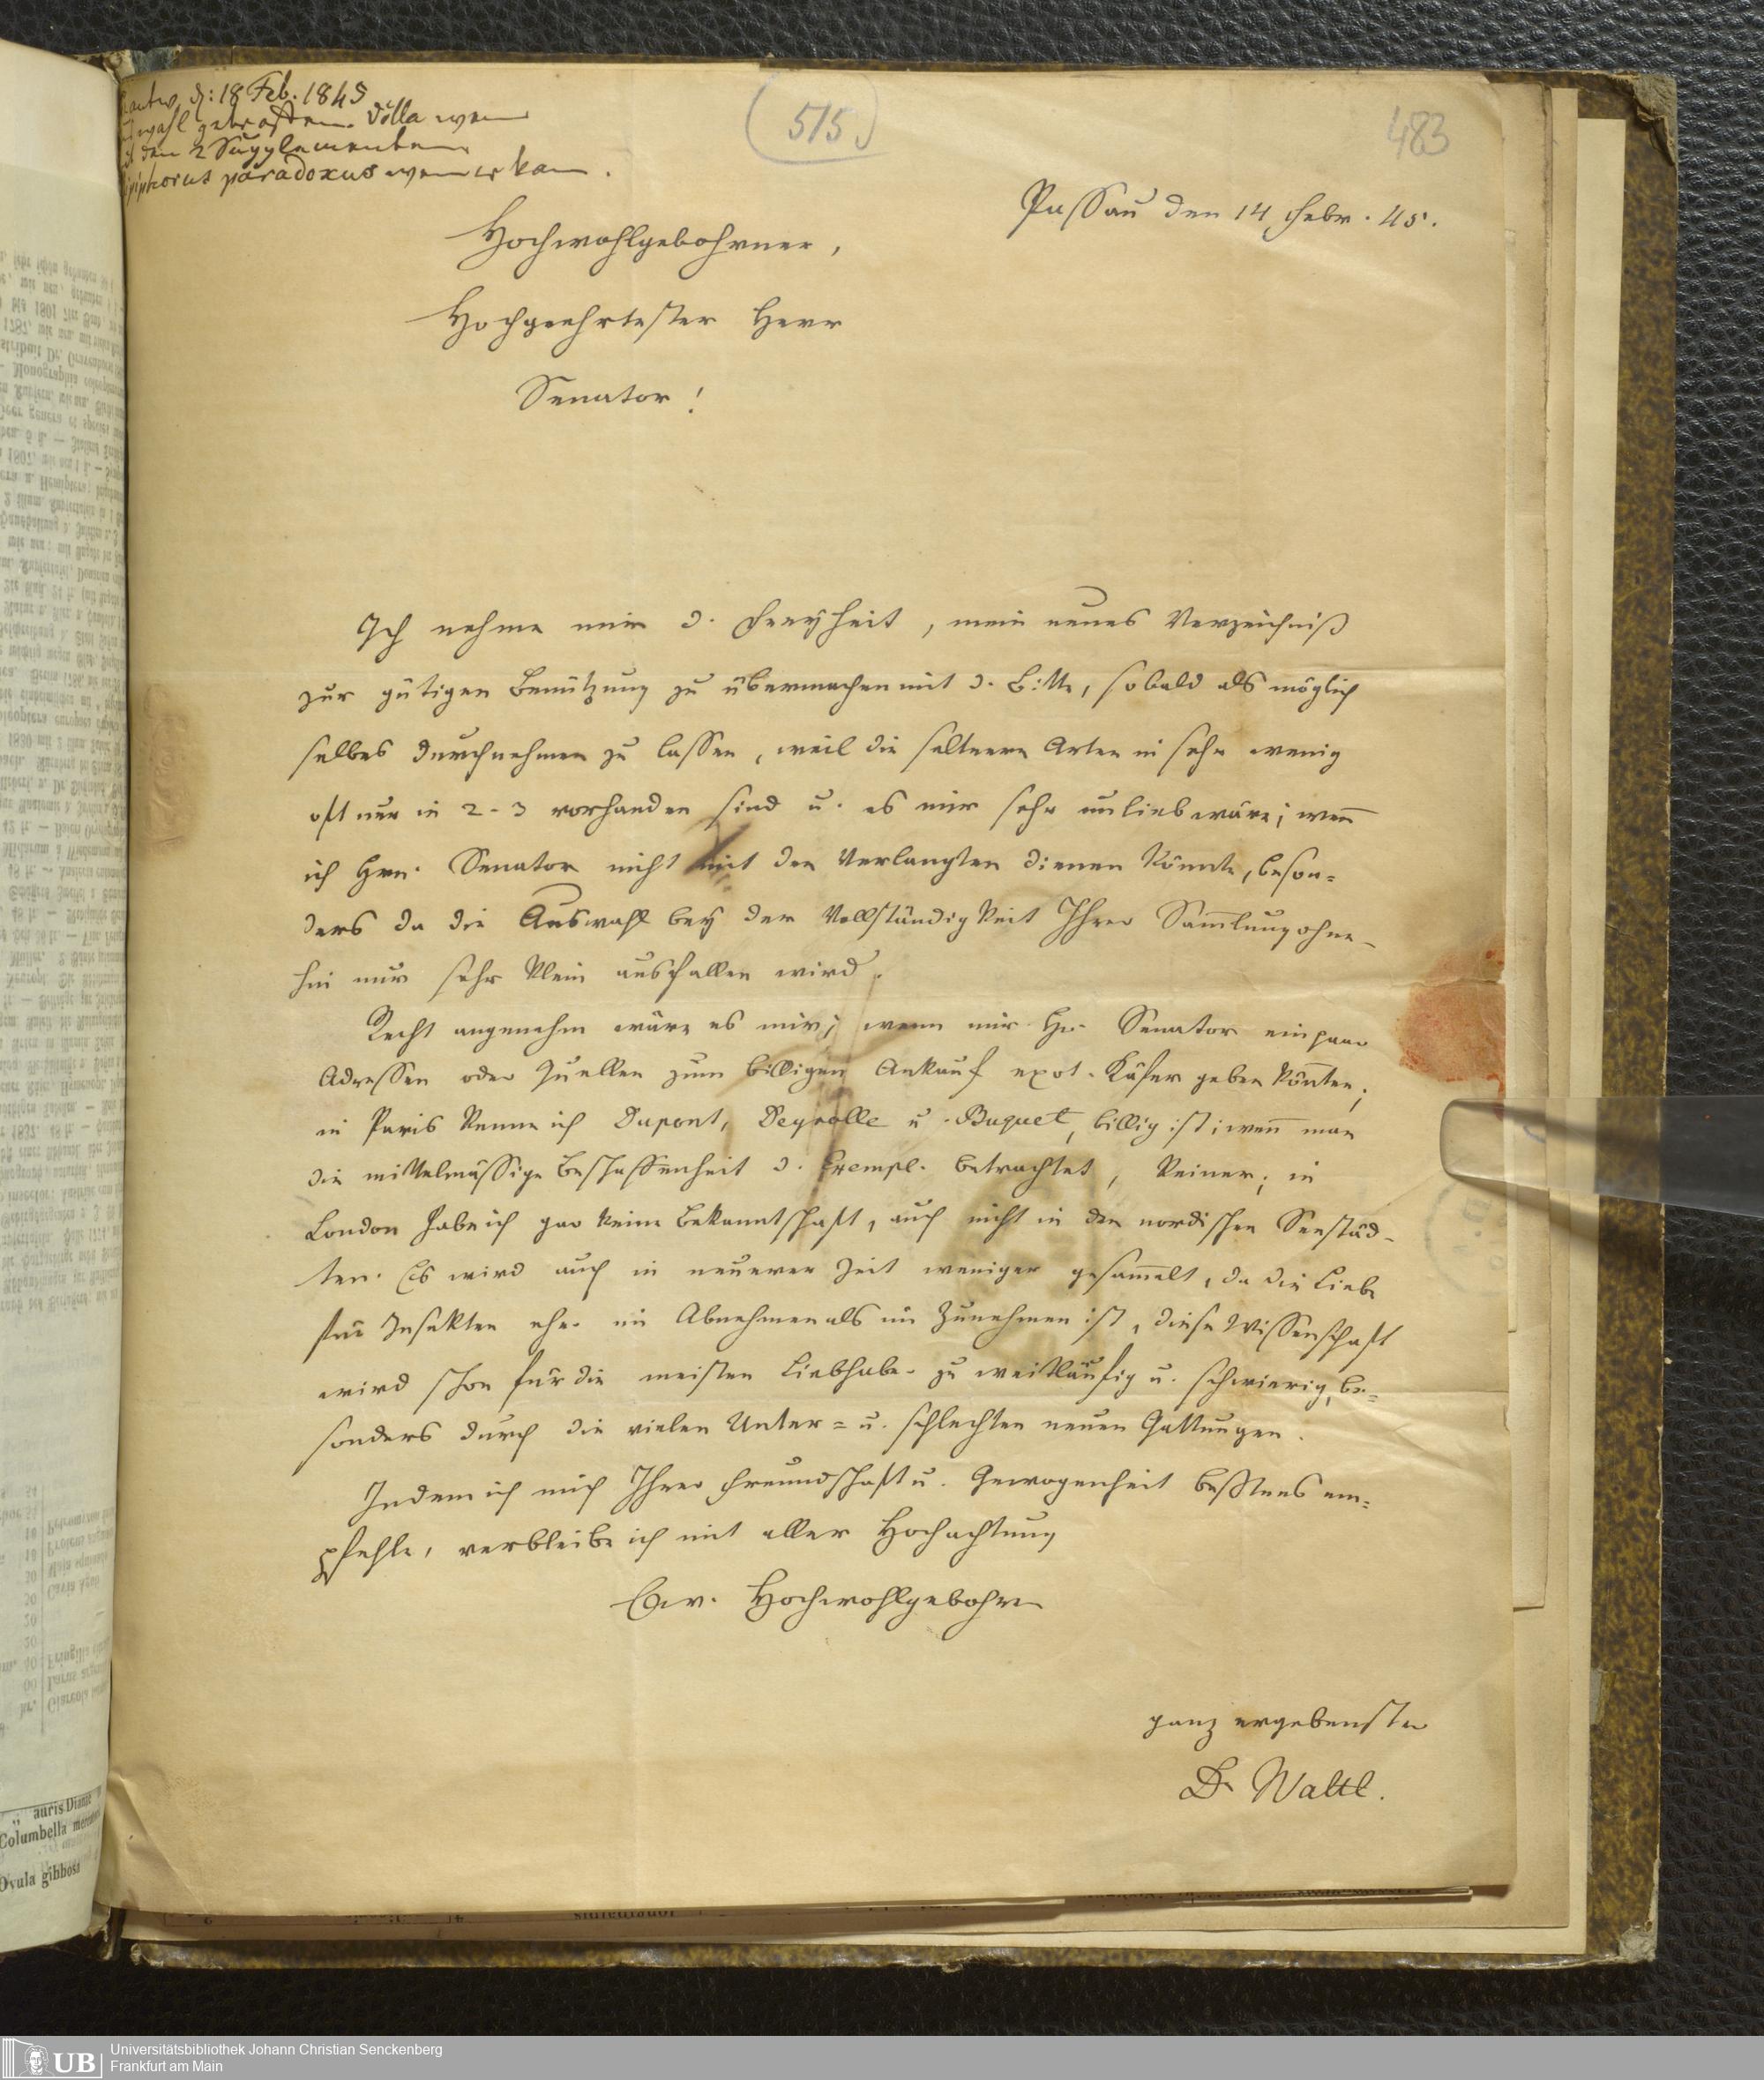 d: 18 Feb. 1845
den 2 Supplementen
paradoxus
515
483
Passau den 14 Febr. 45.
Hochwohlgebohrner,
Hochgeehrtester Herr
Senator!
Ich nehme mir d. Freyheit, mein neues Verzeichniß
zur gütigen Benützung zu übermachen mit d. Bitte, sobald als möglich
selbes durchnehmen zu lassen, weil die seltnern Arten in sehr wenig
oft nur in 2-3 vorhanden sind u. es mir sehr unlieb wäre; wenn̄
ich Hrn. Senator nicht mit den Verlangten dienen könnte, beson=
ders da die Auswahl bey der Vollständigkeit Ihrer Sam̄lung ohne-
hin nur sehr klein ausfallen wird.
Recht angenehm wäre es mir; wenn mir Hr. Senator ein paar
Adressen oder Quellen zum billigen Ankauf exot. Käfer geben kön̄ten;
in Paris kenne ich Dupont, Deyrolle u. Buquet, billig ist; wen̄ man
die mittelmässige Beschaffenheit d. Exempl. betrachtet, keiner; in
London habe ich gar keine Bekanntschaft, auch nicht in den nordischen Seestäd-
ten. Es wird auch in neuerer Zeit weniger gesam̄elt, da die Liebe
für Insekten eher im Abnehmen als im Zunehmen ist, diese Wissenschaft
wird schon für die meisten Liebhaber zu weitläufig u. schwierig, be=
sonders durch die vielen Unter= u. schlechten neuen Gattungen.
Indem ich mich Ihrer Freundschaft u. Gewogenheit besstens em=
pfehle, verbleibe ich mit aller Hochachtung
Ew. Hochwohlgebohrn
ganz ergebenster
Dr Waltl.
auris Dianae
Columbella
Ovula gibbosa
UB
Universitätsbibliothek Johann Christian Senckenberg
Frankfurt am Main